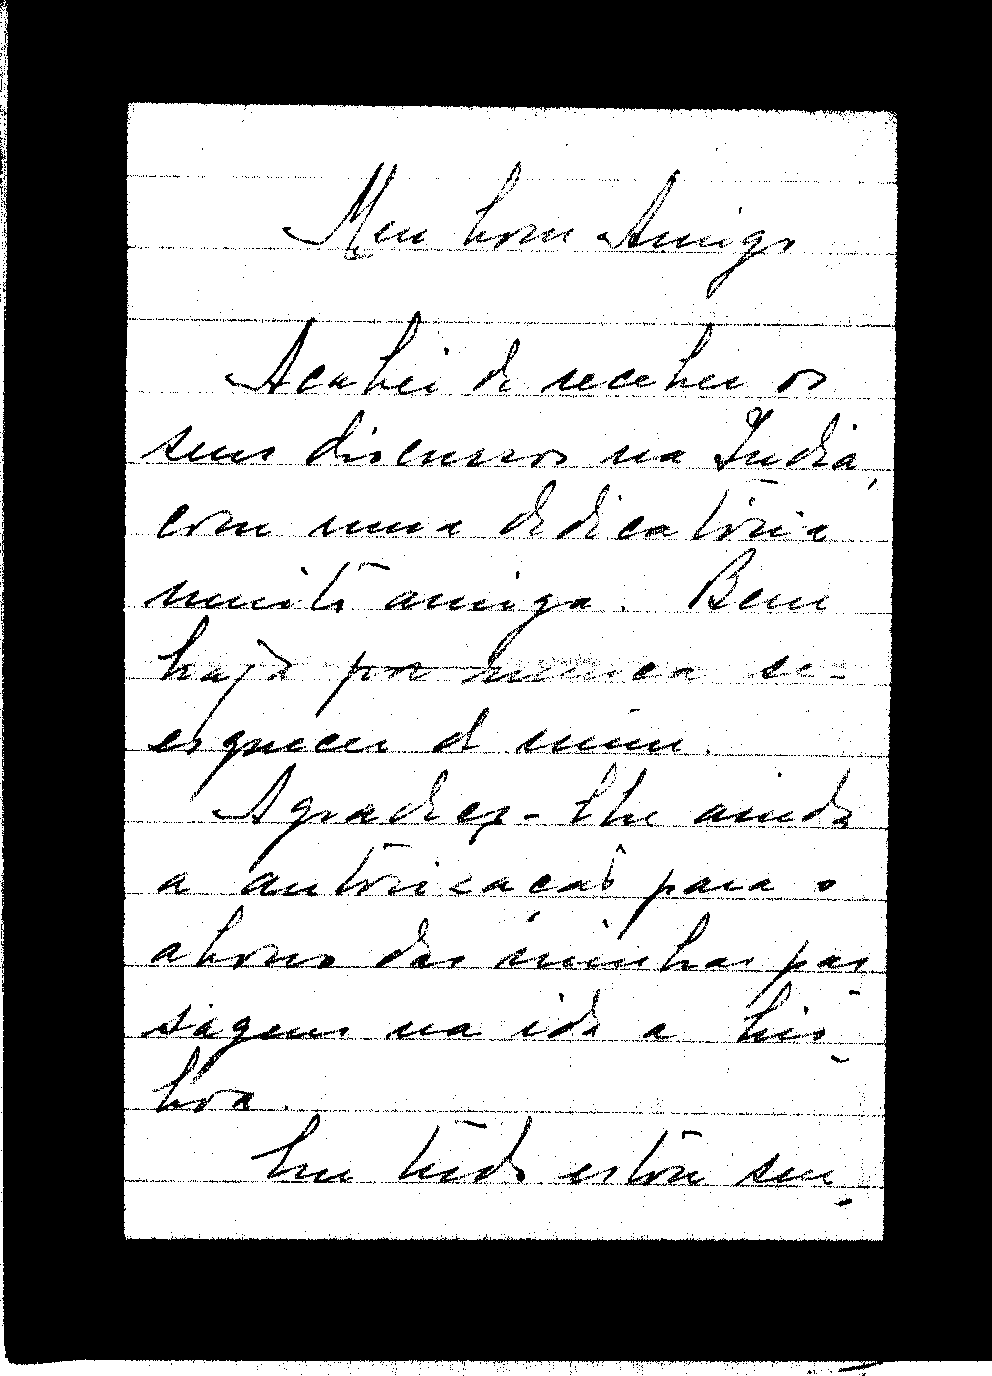 Meu bom Amigo
Acabei de receber os
seus discursos na India,
com uma dedicatória
muito amiga. Bem
haja por nunca se
esquecer de mim.
Agradeço-lhe ainda
a autorisação para o
abono das minhas pas-
sagens na ida a Lis-
boa.
Em tudo estou sem-